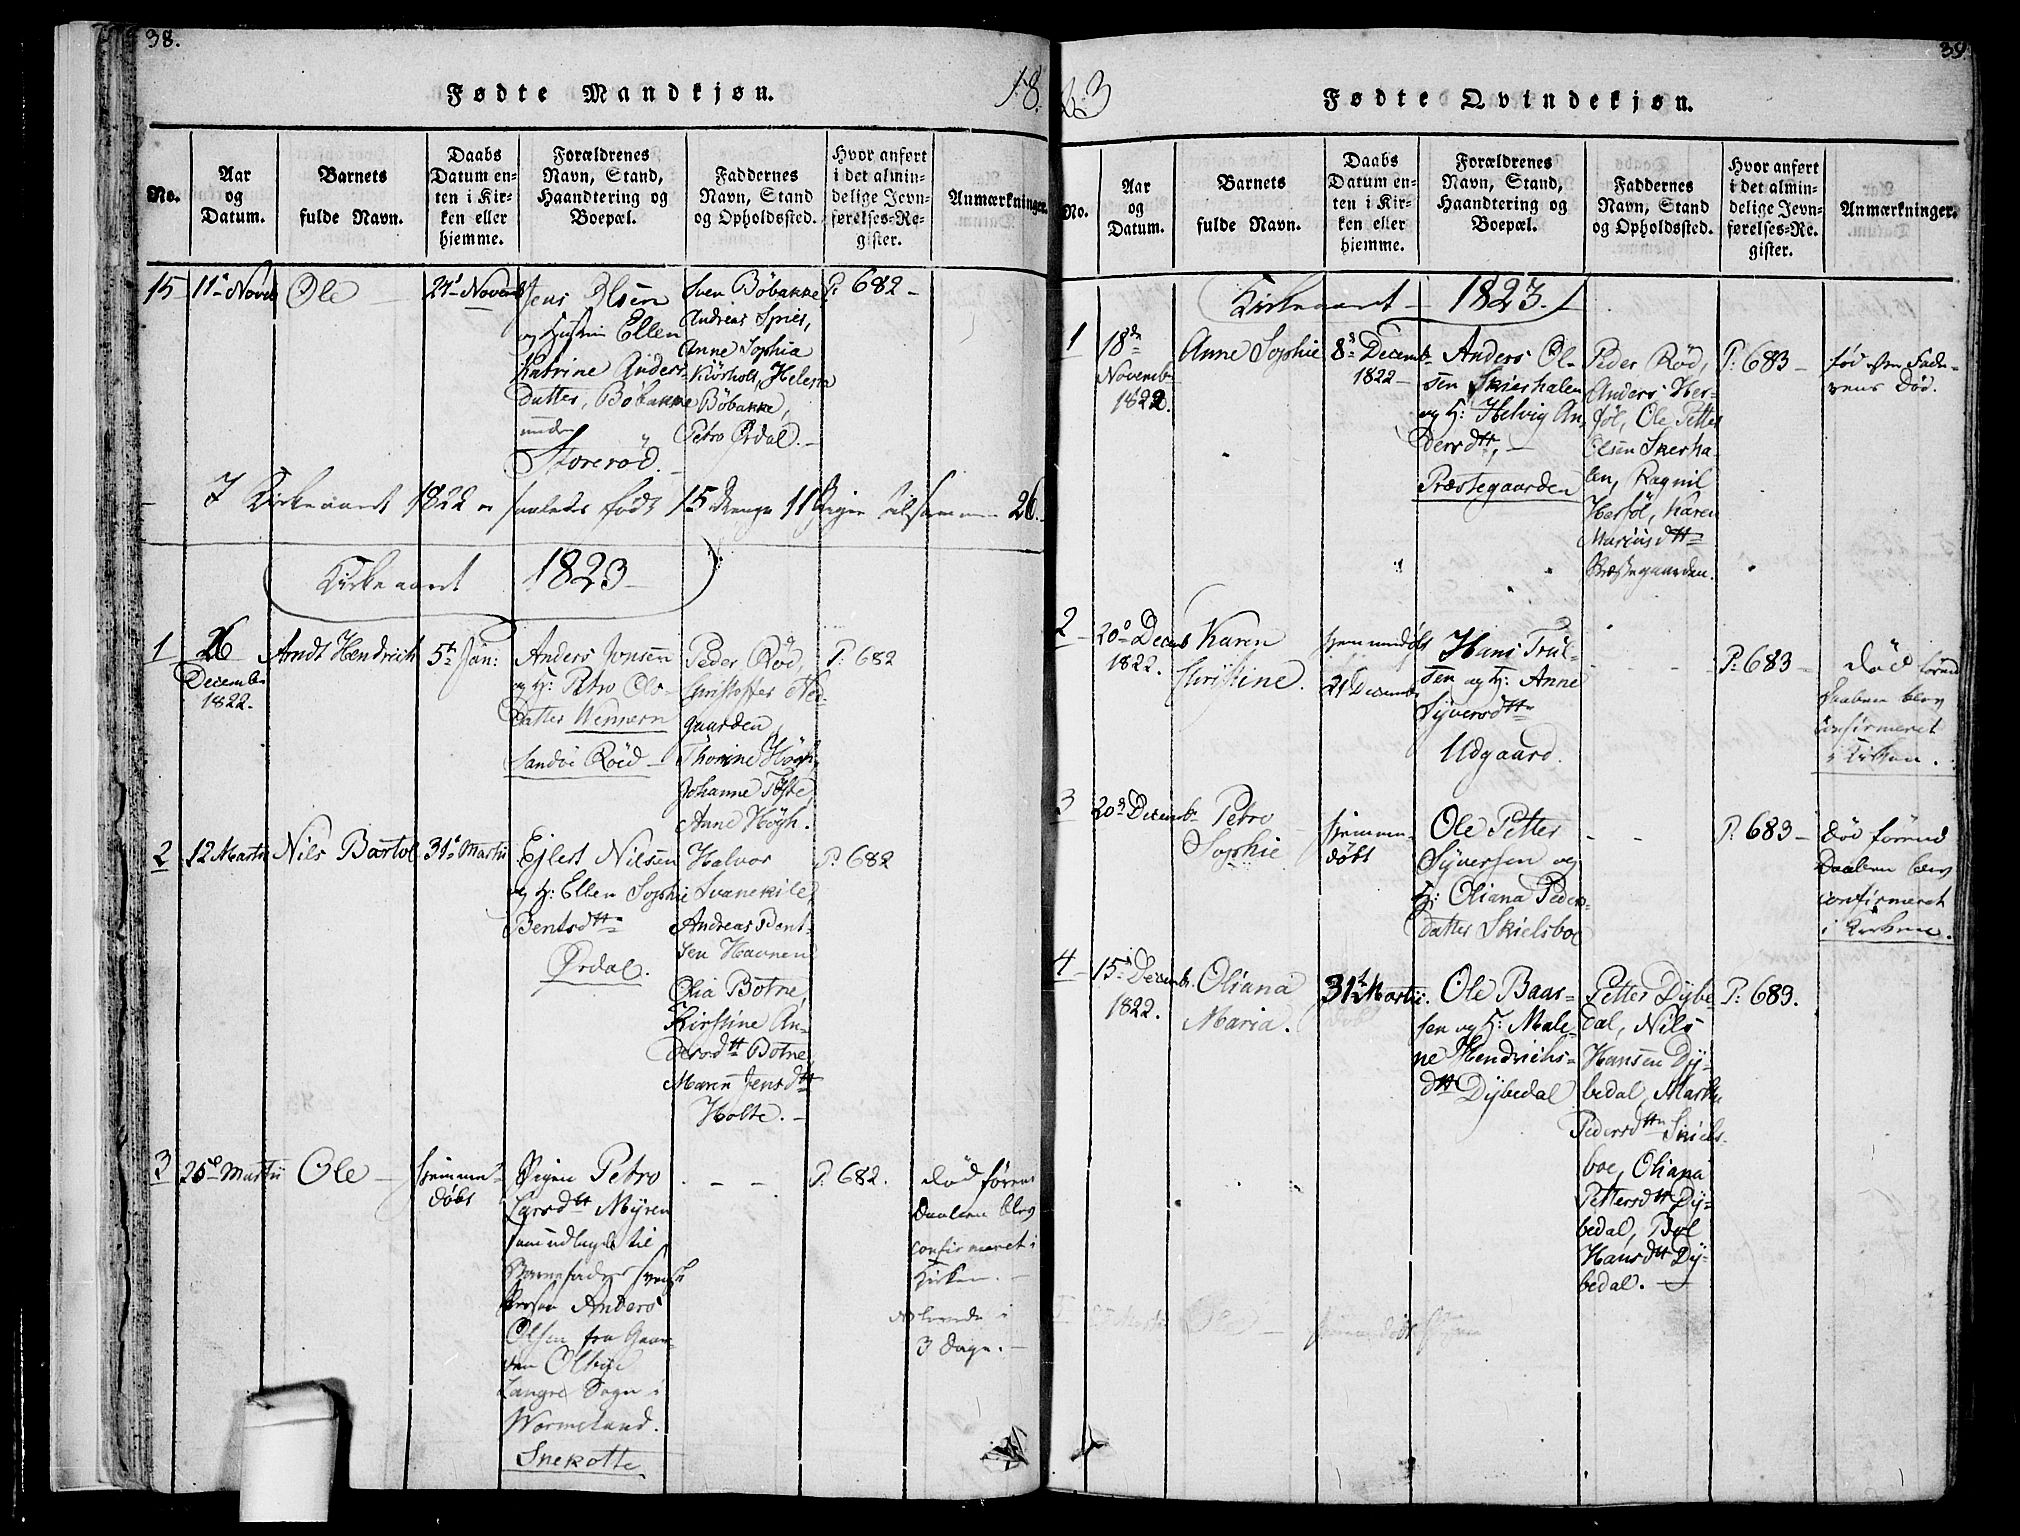 38.
18
Fødte Mandkjøn.
No.
Aar
og
Datum.
Barnets
fulde Navn.
Daabs
Datum en-
ten i Kir-
ken eller
hjemme.
Forældrenes
Navn, Stand,
Haandtering og
Boepæl.
Faddernes
Navn, Stand
og Opholdssted.
Hvor anført
i det almin-
delige Jevn-
førelses-Re-
gister.
Anmærkninger.
15 11te Novb Ole 24de Novemb
Jens Olsen
og Hustru Ellen
Katrine Anders
datter, Bøbakke
under
Storerød.
Sven Bøbakke
Andreas Spies,
Anne Sophia
Kiørholt, Helena
Bøbakke,
Petro Ørdal.
P: 682
I Kirkeaaret 1822 er saaledes født 15 Drenge 11 Piger tilsammen 26.
Kirkeaaret 1823
1 26
Decemb
1822.
Arndt Hendrich
5te Jan:
Anders Jonsen
og H: Petro Ols-
datter Wennern
Sandvi Röed
Peder Rød,
Christoffer Ned-
gaarden,
Thorine Høgh,
Johanne Tofte
Anne Høgh.
P: 682
2 12 Martii Nils Bartol 31te Martii
Ejlert Nilsen
og H: Ellen Sophie
Bentsdtt
Ørdal.
Halvor
Svanekile,
Andreas Bent-
sen Havnen
Olia Botne,
Kirstine An-
dersdtt Botne,
Maren Jensdtt
Holte.
P: 682
3 25de Martii Ole
hjemme-
døbt
Pigen Petro
Larsdtt Myren
som udlagde til
Barnefader svensk
Person Anders
Olsen fra Gaar-
den Ölbye
Langre Sogn i
Wormeland.
Snekotte
P: 682.
død føren
Daaben blev
confirmeret i
Kirken.
levede i
3 Dage.
39
23
Fødte Qvindekjøn.
No.
Aar
og
Datum.
Barnets
fulde Navn.
Daabs
Datum en-
ten i Kir-
ken eller
hjemme.
Forældrenes
Navn, Stand,
Haandtering og
Boepæl.
Faddernes
Navn, Stand
og Opholdssted.
Hvor anført
i det almin-
delige Jevn-
førelses-Re-
gister.
Anmærkninger.
Kirkeaaret 1823.
1 18de
Novemb
1822.
Anne Sophie
8de Decemb
1822
Anders Ol-
sen Skierhalen
og H: Helvig An-
dersdtt,
Præstegaarden
Peder Rød,
Anders Her-
føl, Ole Petter
Olsen Skerha-
len, Ragnil
Herføl, Karen
Mariusdtt
Præstegaarden.
P: 683
fød efter Fade-
rens Død.
2 20de Decemb
1822.
Karen
Christine.
hjemmedøbt
21 Decemb
Hans Trul-
sen og H: Anne
Syversdtt
Udgaard.
P: 683
død førend
Daaben blev
confirmeret
i Kirken.
3 20de Decemb
Petro
Sophie
hjemme-
døbt
Ole Petter
Syversen og
H: Oliana Peders-
datter Skielsboe
P: 683
død førend
Daaben blev
confirmeret
i Kirken.
4 15de Decemb.
1822.
Oliana
Maria.
31te Martii.
Ole Baar-
sen og H: Male-
ne Hendrichs-
dtt Dybedal
Petter Dybe
dal, Nils
Hansen Dy-
bedal, Marthe
Pedersdtt Skiels-
boe, Oliana
Pettersdtt Dy-
bedal, Bol
Hansdtt Dy-
bedal.
P: 683.